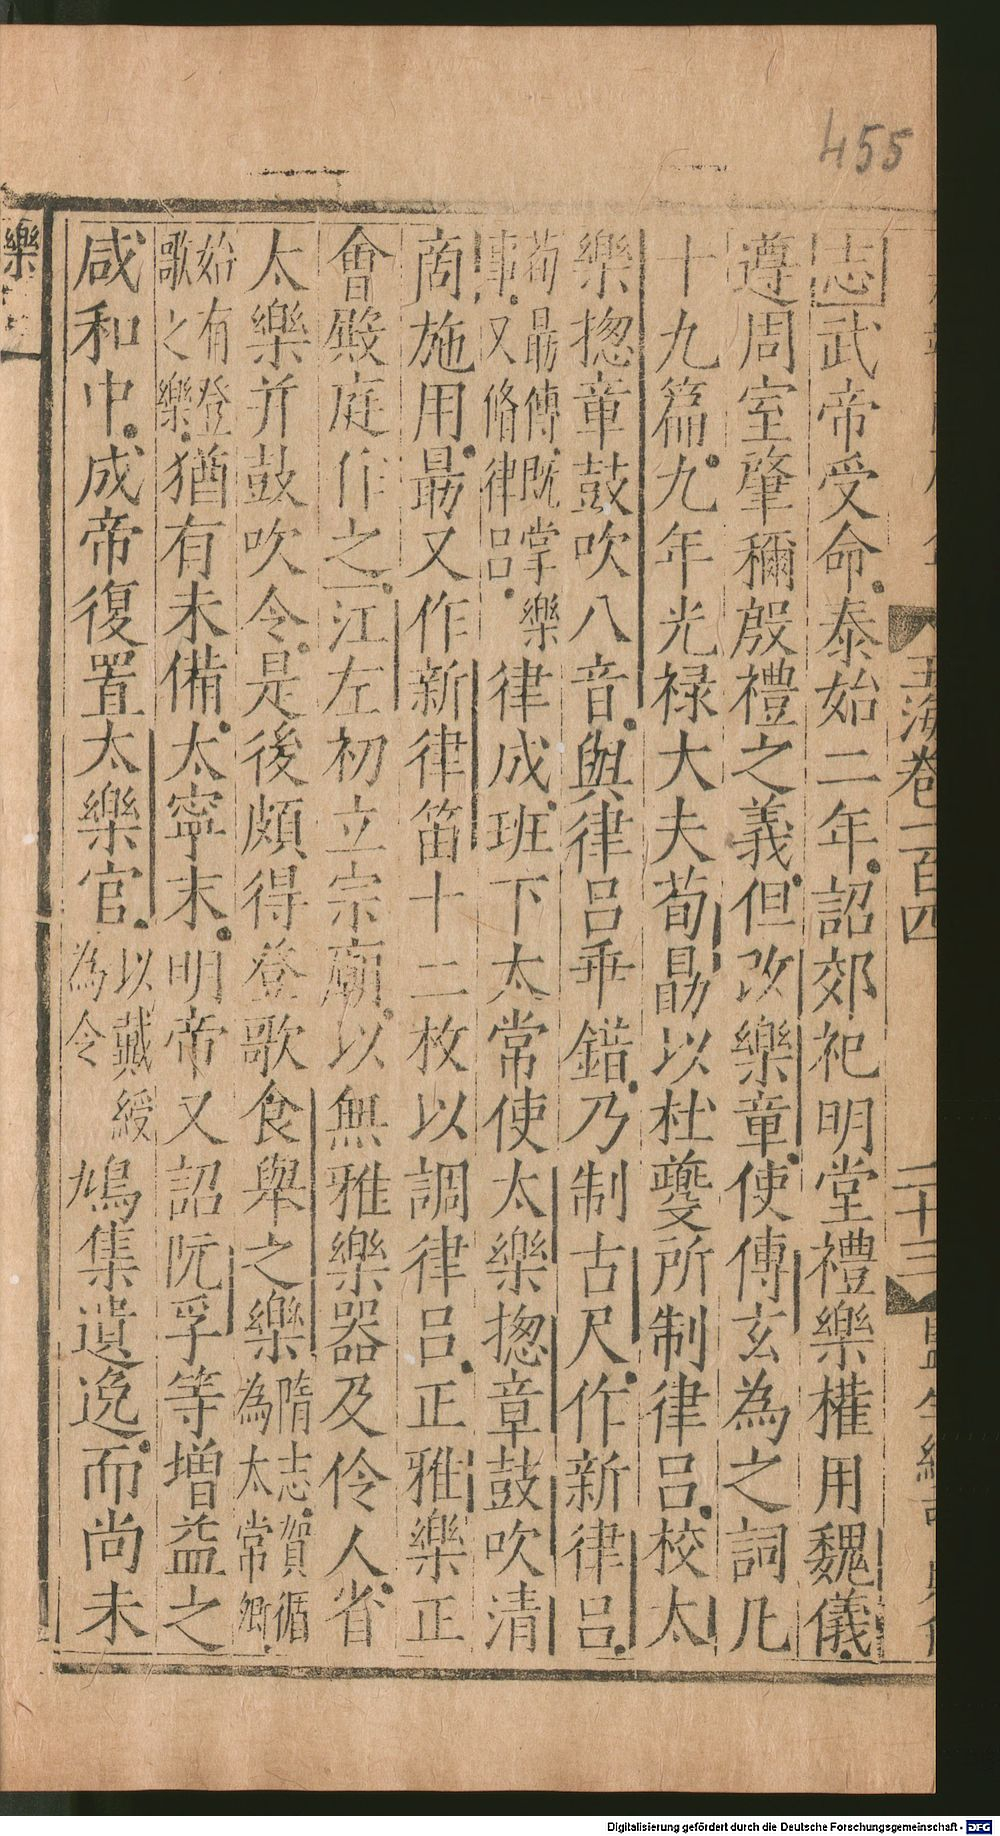 455
玉海卷一百四 二十三
志武帝受命泰始二年詔郊祀明堂禮樂權用魏儀
遵周室肇稱殷禮之義但改樂章使傅玄為之詞凡
十九篇九年光禄大夫荀勗以杜夔所制律呂校太
樂揔章鼓吹八音與律呂乖錯乃制古尺作新律呂
荀勗傳既掌樂
事又脩律呂
律成班下太常使太樂揔章鼓吹清
商施用勗又作新律笛十二枚以調律呂正雅樂正
會殿庭作之江左初立宗廟以無雅樂器及伶人省
太樂并鼓吹令是後頗得登歌食舉之樂
隋志賀循
為太常卿
始有登
歌之樂
猶有未備太寧末明帝又詔阮孚等增益之
咸和中成帝復置太樂官
以戴綬
為令
鳩集遺逸而尚未
樂
Digitalisierung gefördert durch die Deutsche Forschungsgemeinschaft - DFG